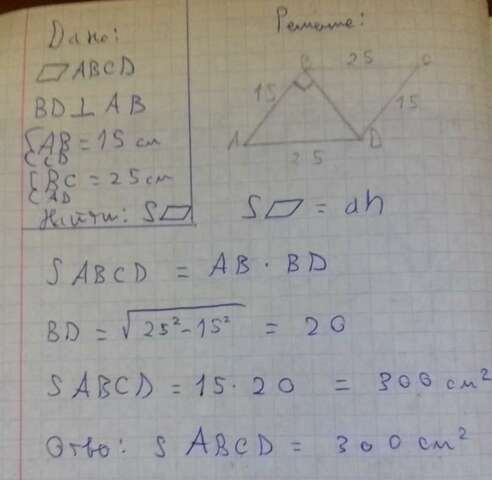 Дано:
▱ ABCD
BD ⊥ AB
AB = 15 см
BC = 25 см
AD
Найти: S▱
Решение:
B 25 C
15 15
A D
25
S▱ = ah
S ABCD = AB · BD
BD = √25² - 15² = 20
S ABCD = 15 · 20 = 300 см²
Отво: S ABCD = 300 см²